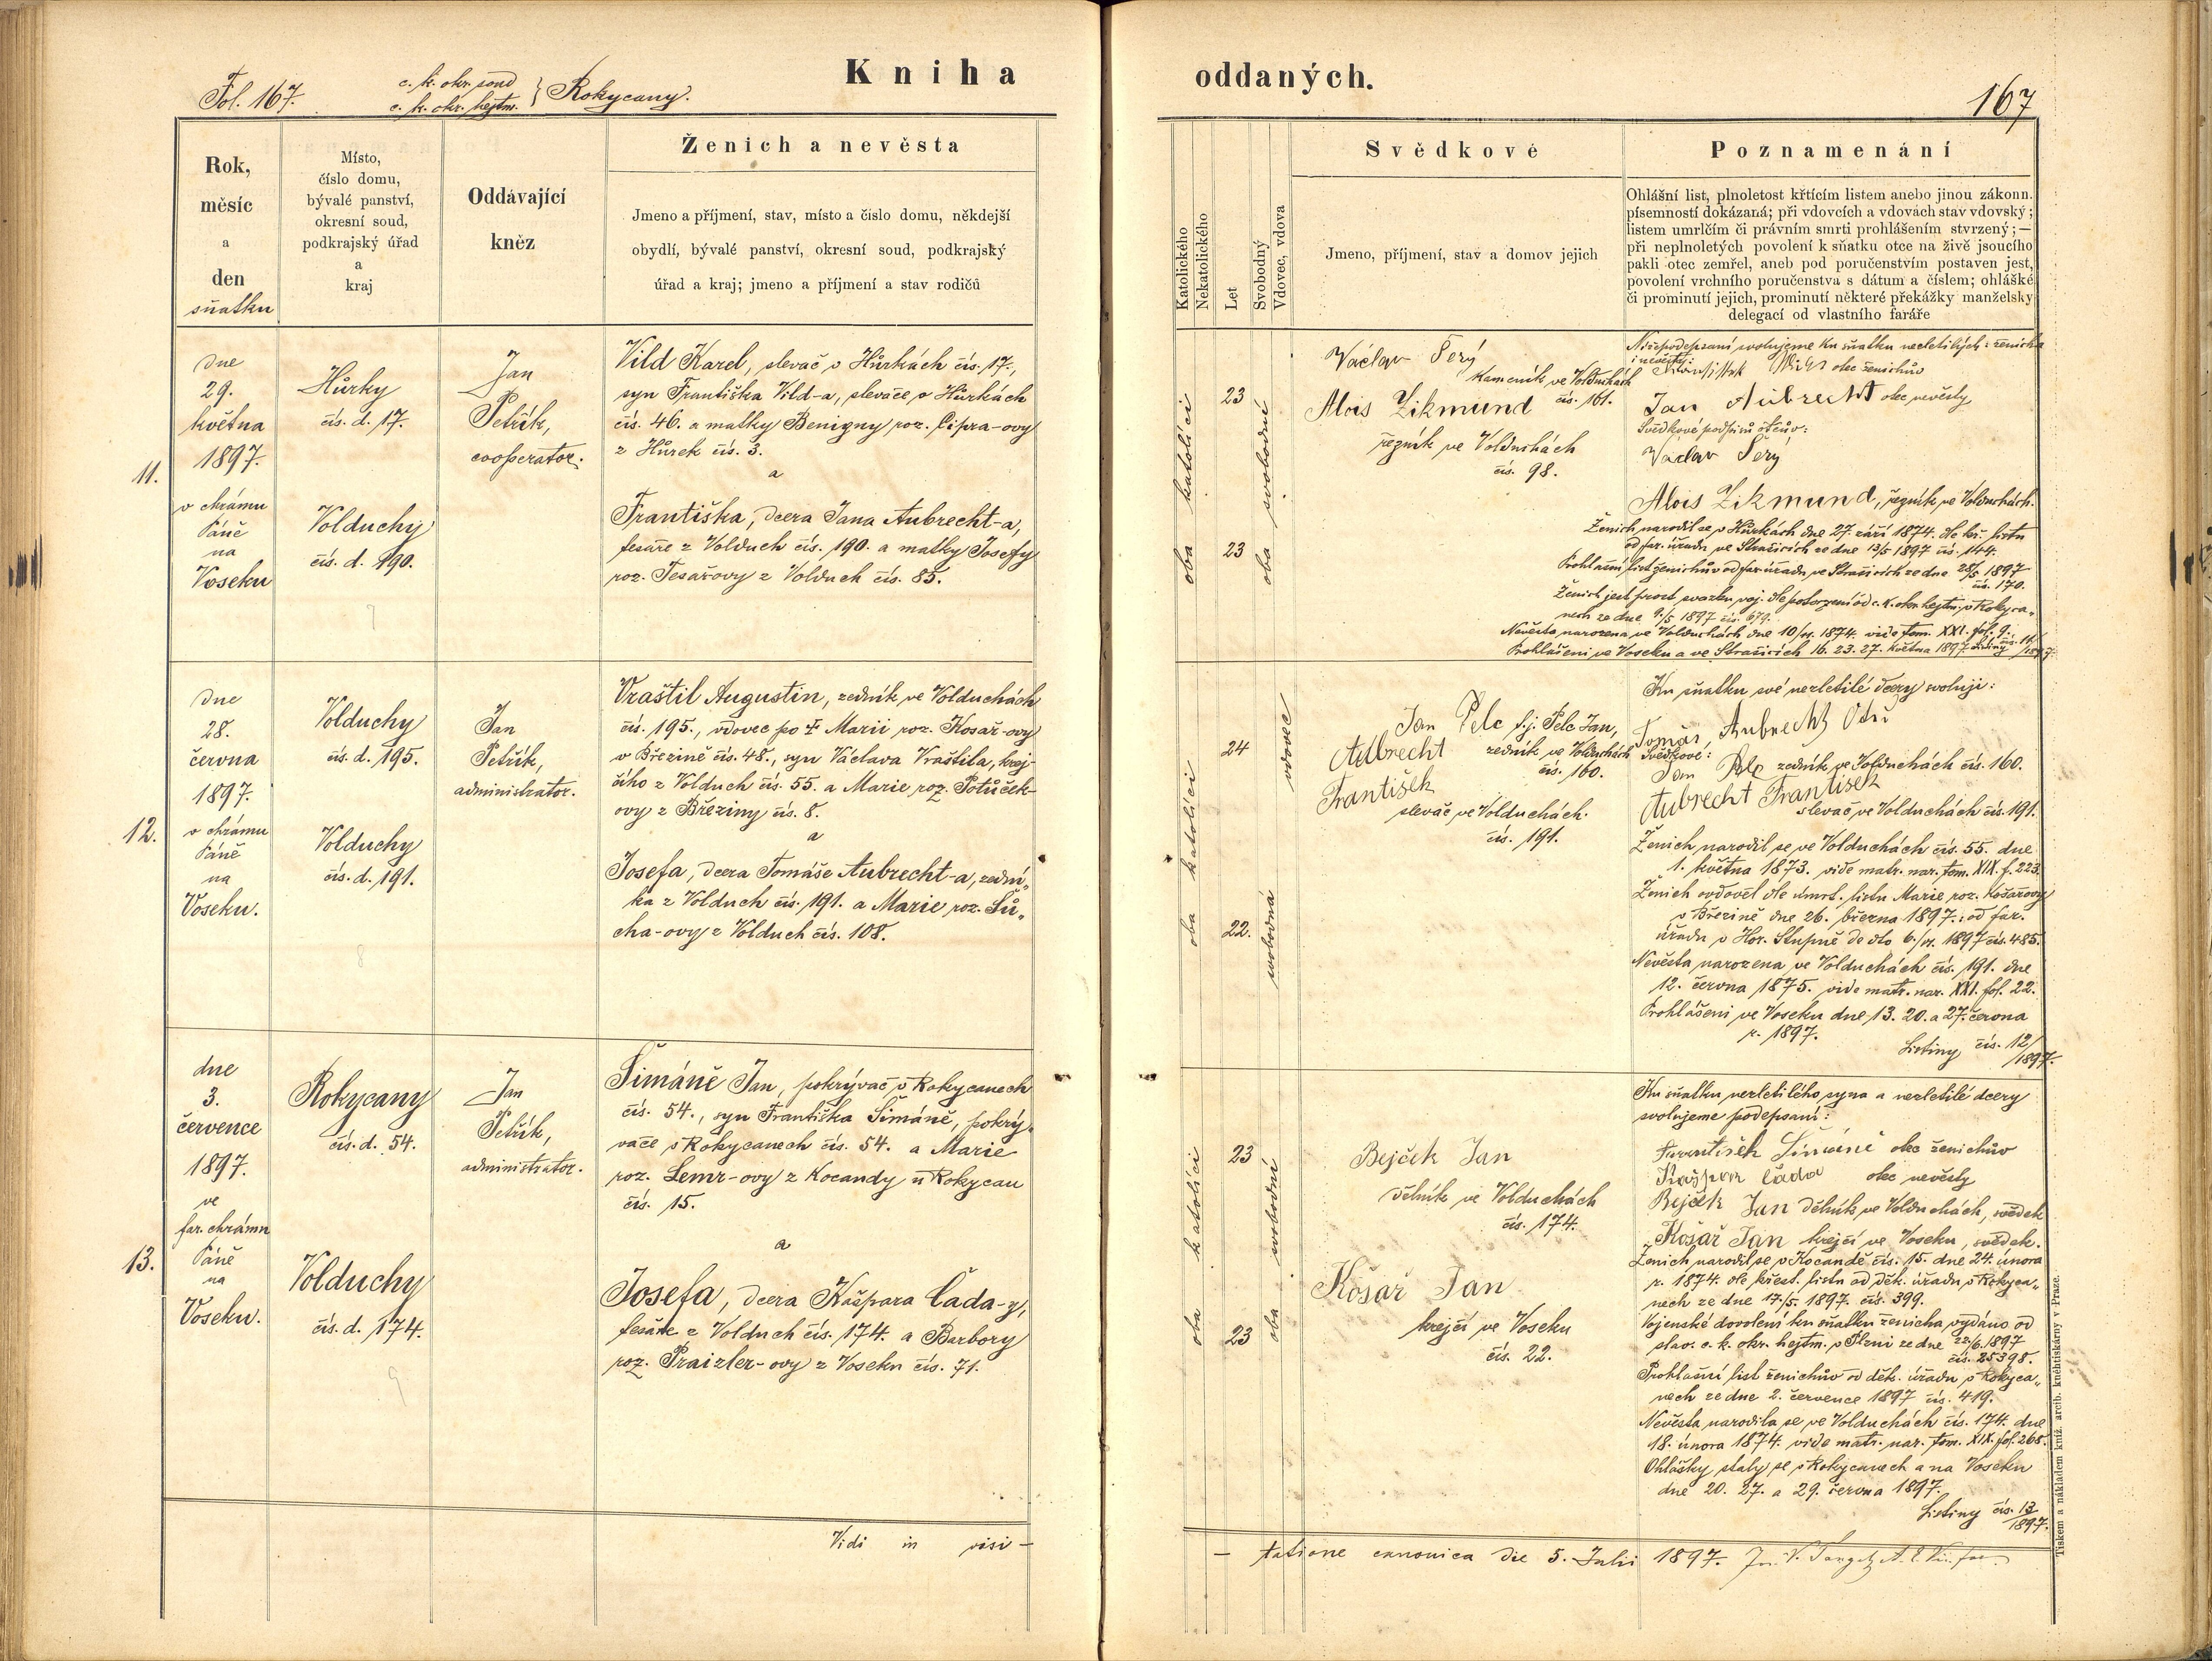 Fol. 167.
c. k. okr. soud
c. k. okr. hejtm. } Rokycany.
Kniha
Rok,
měsíc
a
den
sňatku
Místo,
číslo domu,
bývalé panství,
okresní soud,
podkrajský úřad
a
kraj
Oddávající
kněz
Ženich a nevěsta
Jmeno a příjmení, stav, místo a číslo domu, někdejší
obydlí, bývalé panství, okresní soud, podkrajský
úřad a kraj; jmeno a příjmení a stav rodičů
11.
dne
29.
května
1897.
v chrámu
Páně
na
Voseku
Hůrky
čís. d. 17.
Volduchy
čís. d. 190.
Jan
Petřík,
cooperator.
Vild Karel, slevač v Hůrkách čís. 17.,
syn Františka Vild-a, slevače, v Hůrkách
čís. 46. a matky Benigny roz. Cipra-ovy
z Hůrek čís. 3.
a
Františka, dcera Jana Aubrecht-a,
tesaře z Volduch čís. 190. a matky Josefy
roz. Tesařovy z Volduch čís. 85.
7
12.
dne
28.
června
1897.
v chrámu
Páně
na
Voseku.
Volduchy
čís. d. 195.
Volduchy
čís. d. 191.
Jan
Petřík,
administrator.
Vraštil Augustin, zedník ve Volduchách
čís. 195., vdovec po † Marii roz. Kosař-ovy
v Březině čís. 48., syn Václava Vraštila, krej-
čího z Volduch čís. 55. a Marie roz. Potůček-
ovy z Březiny čís. 8.
a
Josefa, dcera Tomáše Aubrecht-a, zední„
ka z Volduch čís. 191. a Marie roz. Sů„
cha-ovy z Volduch čís. 108.
8
13.
dne
3.
července
1897.
ve
far. chrámu
Páně
na
Voseku.
Rokycany
čís. d. 54.
Volduchy
čís. d. 174.
Jan
Petřík,
administrator.
Šimáně Jan, pokrývač v Rokycanech
čís. 54., syn Františka Šimáně, pokrý„
vače v Rokycanech čís. 54. a Marie
roz. Lemr-ovy z Kocandy u Rokycan
čís. 15.
a
Josefa, dcera Kašpara Čada-y,
tesaře z Volduch čís. 174. a Barbory
roz. Praizler-ovy z Voseku čís. 71.
9
Vidi in visi -
oddaných.
167
Katolického
Nekatolického
Let
Svobodný
Vdovec, vdova
Svědkové
Jmeno, příjmení, stav a domov jejich
Poznamenání
Ohlášní list, plnoletost křtícím listem anebo jinou zákonn.
písemností dokázaná; při vdovcích a vdovách stav vdovský;
listem umrlčím či právním smrti prohlášením stvrzený;—
při neplnoletých povolení k sňatku otce na živě jsoucího
pakli otec zemřel, aneb pod poručenstvím postaven jest,
povolení vrchního poručenstva s dátum a číslem; ohlášké
či prominutí jejich, prominutí některé překážky manželsky
delegací od vlastního faráře
oba katolíci
23
23
oba svobodní
Václav Šerý
kameník ve Volduchách
čís. 161.
Alois Zikmund
řezník ve Volduchách
čís. 98.
Nížepodepsaní svolujeme ku sňatku nezletilých: ženicha
i nevěsty:
otec ženichův
Jan Aubrecht otec nevěsty
Svědkové podpisů otcův:
Václav Šerý
Alois Zikmund, řezník ve Volduchách.
Ženich narodil se v Hůrkách dne 27. září 1874. dle kř. listu
od far. úřadu ve Strašicích ze dne 13/5 1897 čís. 144.
Prohlašní list ženichův od far. úřadu ve Strašicích ze dne 28/5 1897
čís. 170.
Ženich jest prost svazku voj. dle potvrzení od c. k. okr. hejtm. v Rokyca„
nech ze dne 9./5 1897 čís. 679.
Nevěsta narozena ve Volduchách dne 10/ 1874. vide tom. XXI. fol. 9.
Prohlášeni ve Voseku a ve Strašicích 16. 23. 27. května 1897. Listiny čís. 11/1897.
oba katolíci
24
22.
vdovec
svobodná
Jan Pelc t. j. Pelc Jan,
zedník ve Volduchách
čís. 160.
Aubrecht
František
slevač ve Volduchách.
čís. 191.
Ku sňatku své nezletilé dcery svoluji:
Tomáš Aubrecht
Svědkové:
Jan Pelc zedník ve Volduchách čís. 160.
Aubrecht František
slevač ve Volduchách čís. 191.
Ženich narodil se ve Volduchách čís. 55. dne
1. května 1873. vide matr. nar. tom. XIX. f. 223.
Ženich ovdověl dle úmrt. listu Marie roz. Košařovy
v Březině dne 26. března 1897.: od far.
úřadu v Hor. Stupně de dto 6./ 1897 čís. 485.
Nevěsta narozena ve Volduchách čís. 191. dne
12. června 1875. vide matr. nar. XXI. fol. 22.
Prohlášeni ve Voseku dne 13. 20. a 27. června
r. 1897.
Listiny čís. 12/1897.
oba katolíci
23
23
oba svobodní
Bejček Jan
dělník ve Volduchách
čís. 174.
Košař Jan
krejčí ve Voseku
čís. 22.
Ku sňatku nezletilého syna a nezletilé dcery
svolujeme podepsaní:
František Šimáně otec ženichův
Kašpar Čada otec nevěsty
Bejček Jan dělník ve Volduchách, svědek
Košař Jan krejčí ve Voseku, svědek.
Ženich narodil se v Kocandě čís. 15. dne 24. února
r. 1874. dle křest. listu od děk. úřadu v Rokyca„
nech ze dne 17./5. 1897. čís. 399.
Vojenské dovolení ku sňatku ženicha vydáno od
slav. c. k. okr. hejtm. v Plzni ze dne 22/6. 1897
čís. 25398.
Prohlašní list ženichův od děk. úřadu v Rokyca„
nech ze dne 2. července 1897 čís. 419.
Nevěsta narodila se ve Volduchách čís. 174. dne
18. února 1874. vide matr. nar. tom. XIX. fol. 268.
Ohlášky staly se v Rokycanech a na Voseku
dne 20. 27. a 29. června 1897.
Listiny čís. 13/1897.
- tatione canonica die 5. Julii 1897.
Tiskem a nákladem kníž. arcib. kněhtiskárny v Praze.